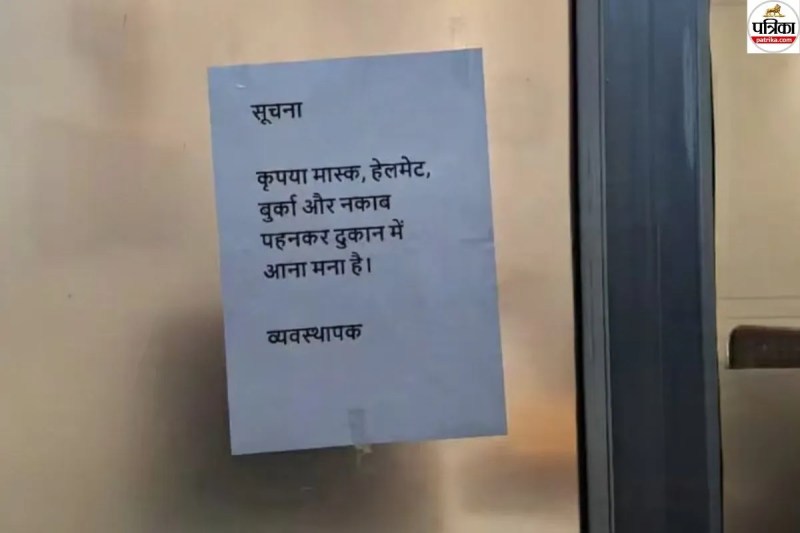 पत्रिका
patrika.com
सूचना
कृपया मास्क, हेलमेट,
बुर्का और नकाब
पहनकर दुकान में
आना मना है।
व्यवस्थापक